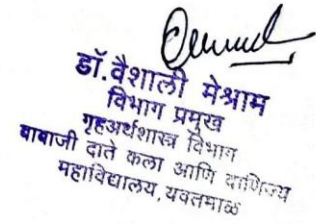 डॉ. वैशाली मेश्राम
विभाग प्रमुख
गृहअर्थशास्त्र विभाग
बाबाजी दाते कला आणि वाणिज्य
महाविद्यालय, यवतमाळ